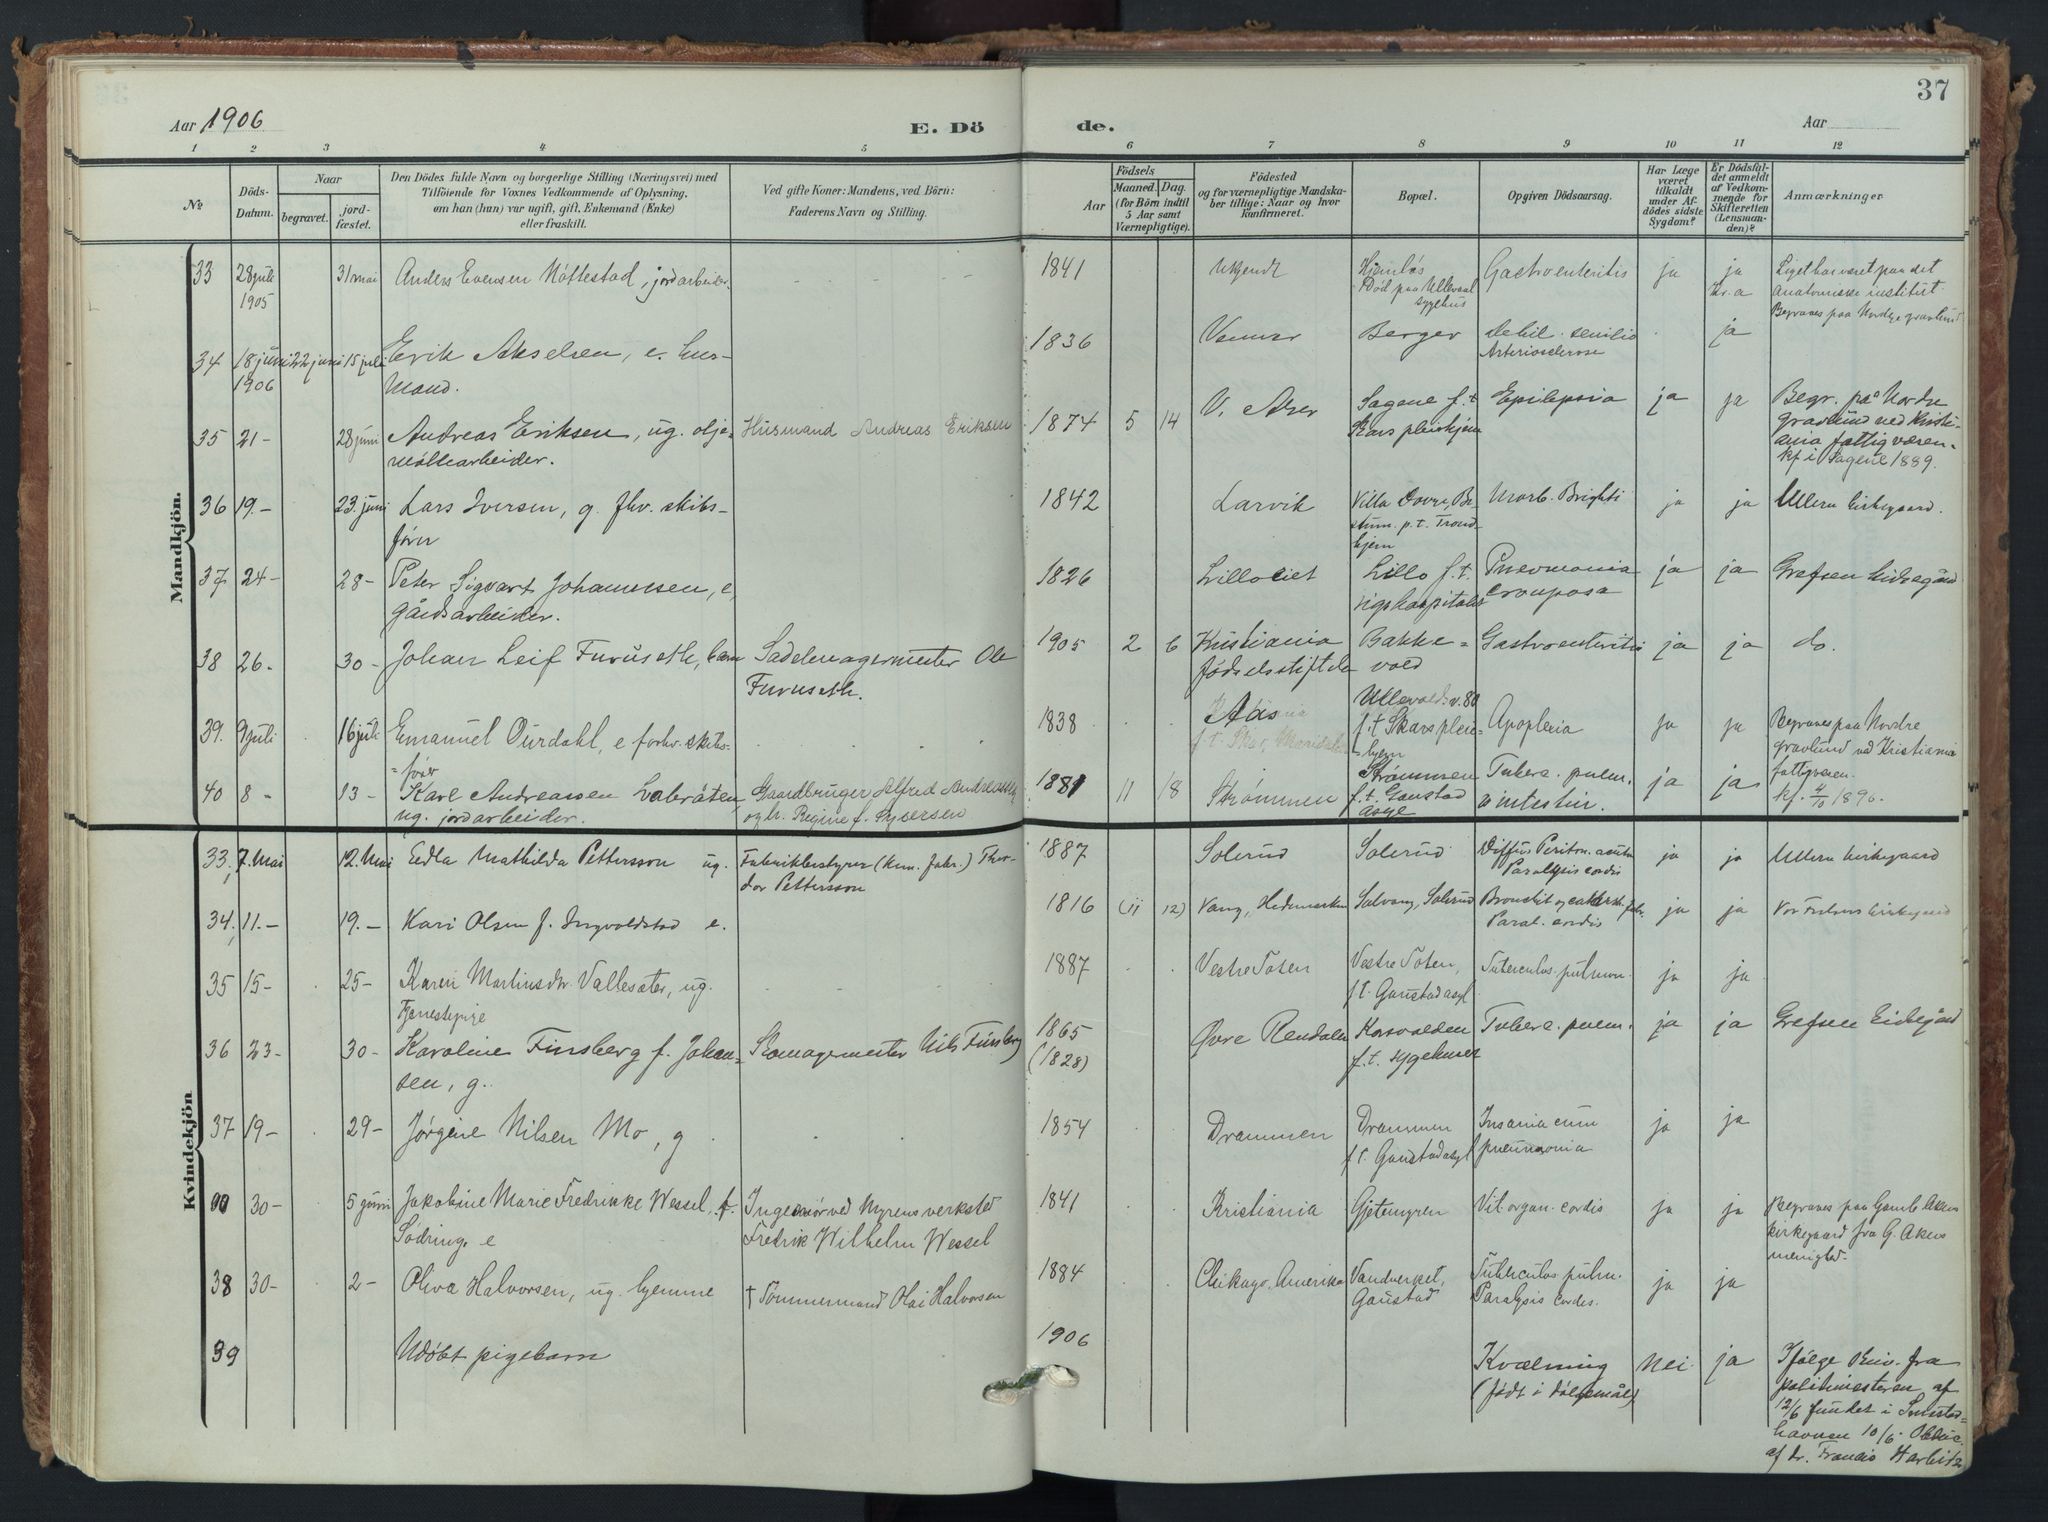 37
Aar 1906.
E. Dö
de.
Aar
1 2 3 4 5 6 7 8 9 10 11 12
№
Döds-
Datum.
Naar
begravet.
jord-
fæstet.
Den Dödes fulde Navn og borgerlige Stilling (Næringsvei) med
Tilföiende for Voxnes Vedkommende af Oplysning,
om han (hun) var ugift, gift, Enkemand (Enke)
eller fraskilt.
Ved gifte Koner: Mandens, ved Börn:
Faderens Navn og Stilling.
Födsels
Aar
Maaned. Dag.
(for Börn indtil
5 Aar samt
Værnepligtige).
Födested
og for værnepligtige Mandska-
ber tillige: Naar og hvor
konfirmeret.
Bopæl.
Opgiven Dödsaarsag.
Har Læge
været
tilkaldt
under Af-
dödes sidste
Sygdom?
Er Dödsfal-
det anmeldt
af Vedkom-
mende for
Skifteretten
(Lensman-
den)?
Anmærkninger
Mandkjön.
33 28 juli
1905
31 mai
Anders Evensen Nöttestad, jordarbeider.
1841
Ukjendt
Hjemløs
Død paa Ullevaal
sygehus
Gastroenteritis
ja
ja
Kr.a
Liget har været paa det
anatomiske institut.
Begraves paa Nordre gravlund
34 18 juni
1906
22 juni 15 juli
Erik Akselsen, e. hus-
mand.
1836
Berger
Debil. senilis
Arteriosclerose
ja
35 21-
28 juni
Andreas Eriksen, ug. olje-
møllearbeider.
Husmand Andreas Eriksen
1874 5 14
V. Aker
Sagene f.t
Skars pleiehjem
Epilepsia
ja
ja
Begr. på Nordre
gravlund ved Kristi-
ania fattigvæsen-
kf i Sagene 1889.
36 19.-
23. juni
Lars Iversen, g. fhv. skibs-
fører
1842
Larvik
Villa Dovre, Be-
stum. p.t. Trond-
hjem
Morb. Brighti
ja
ja
Ullern kirkegaard.
37 24-
28-
Peter Sigvart Johannesen, e.
gårdsarbeider.
1826
Lilloeiet
Lillo f.t.
Pneumonia
crouposa
ja
ja
Grefsen kirkegård
38 26.
30-
Johan Leif Furuseth, barn
Sadelmagermester Ole
Furuseth.
1905 2 6
Kristiania
fødselsstiftelse
Bakke-
vold
Gastroenteritis
ja
ja
do.
39. 9 juli
16 juli
Emanuel Ourdahl, e forhv. skibs-
=fører
1838
Aas
f.t Skar, Maridalen
Ullevoldsv. 80
f.t Skars pleie-
hjem
Apoplexia
ja
ja
Begraves paa Nordre
gravlund ved Kristiania
fattigvæsen.
40 8-
13-
Karl Andreassen
ug. jordarbeider.
Gaardbruger Alfred Andreassen
og h. Regine f. Syversen
1881 11 18
Strømmen
Strømmen
f.t. Gaustad
asyl
Tuberc. pulm.
& intestin.
ja
ja
kf. 4/10 1896.
Kvindekjön
33, 7. Mai
12. Mai
Edla Mathilda Pettersson ug.
Fabrikbestyrer (kem. fabr.) Theo-
dor Pettersson
1887
Solerud
Solerud
Diffus Periton. acuta
Paralysis cordis
ja
ja
Ullern kirkegaard
34, 11.-
19.-
Kari Olsen f. Ingvoldstad e.
1816 (11 12)
Vang, Hedemarken
Solvang, Solerud
Paral. cordis
ja
ja
Vor Frelsers kirkegaard
35 15-
25-
Karen Martinsdtr. Vallesæter, ug.
Tjenestepige
1887
Vestre Toten
Vestre Toten,
f.t. Gaustad asyl
Tuberculos. pulmon.
ja
ja
36 23-
30-
Karoline Finsberg f. Johan-
sen, g.
Skomagermester Nils Finsberg
1865
(1828)
Øvre Rendalen
Korsvolden
f.t. sygehuset
Tuberc. pulm.
ja
ja
Grefsen
37 19-
29-
Jørgine Nilsen Mo, g
1854
Drammen
Drammen
f.t. Gaustad asyl
Insania cum
pneumonia
ja
ja
30-
5 juni
Jakobine Marie Fredrikke Wessel, f.
Sødring. e
Ingeniør ved Myrens verksted
Fredrik Wilhelm Wessel
1841
Kristiania
Gjetemyren
Vit. organ. cordis
ja
ja
Begraves paa Gamle Akers
kirkegaard fra G. Akers
menighed.
38 30-
2-
Oliva Halvorsen, ug. hjemme
† Tømmermand Olai Halvorsen
1884
Chikago, Amerika
Vandverket,
Gaustad
Tuberculos pulm.
Paralysis cordis.
ja
ja
39
Udøbt pigebarn
1906
Kvælning
(født i dølgsmål)
nei.
ja
Ifølge skriv. fra
politimesteren af
12/6 fundet i
havnen 10/6.
af dr. Francis Harbitz